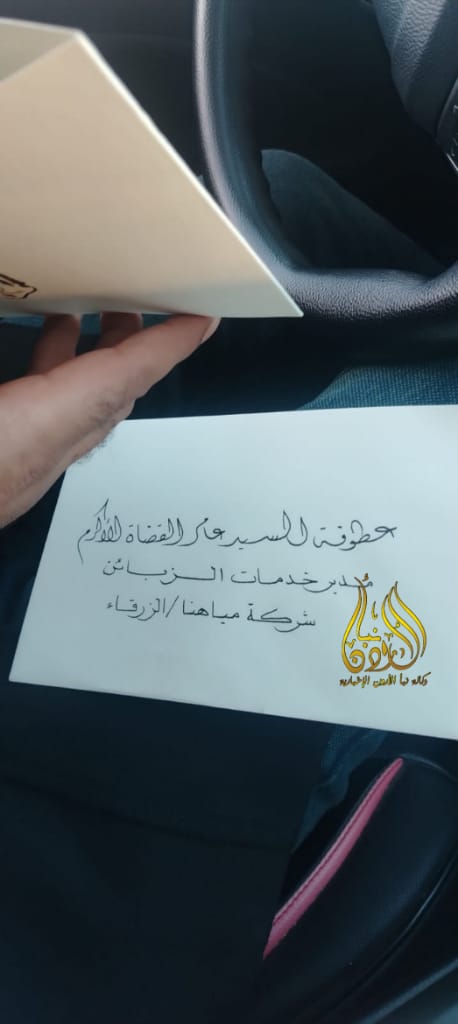 عطوفة السيد عامر القضاة الأكرم
مدير خدمات الزبائن
شركة مياهنا/الزرقاء
نبأ الأردن
وكالة نبأ الأردن الإخبارية